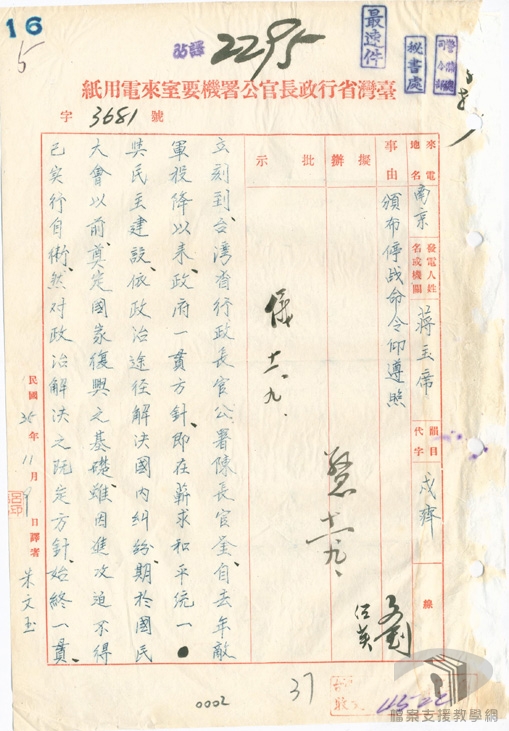 16
5
2295
最速件
秘書處
臺灣省行政長官公署機要室來電用紙
字 3681 號
來電地名 南京
發電人姓名或機關 蔣主席
韻目代字 戌齊
線
事由 頒布停战命令仰遵照
擬辦
批示
儀 十一、九、
立刻到台湾省行政长官公署陳长官鉴、自去年敵
軍投降以来、政府一贯方針、即在蘄求和平统一
與民主建設、依政治途径解决國内糾纷、期於國民
大會以前、奠定國家復興之基礎、雖因進攻迫不得
已实行自衛、然对政治解决之既定方針、始終一貫、
民國35年11月9日譯署 朱文玉
0002
37
檔案支援教學網